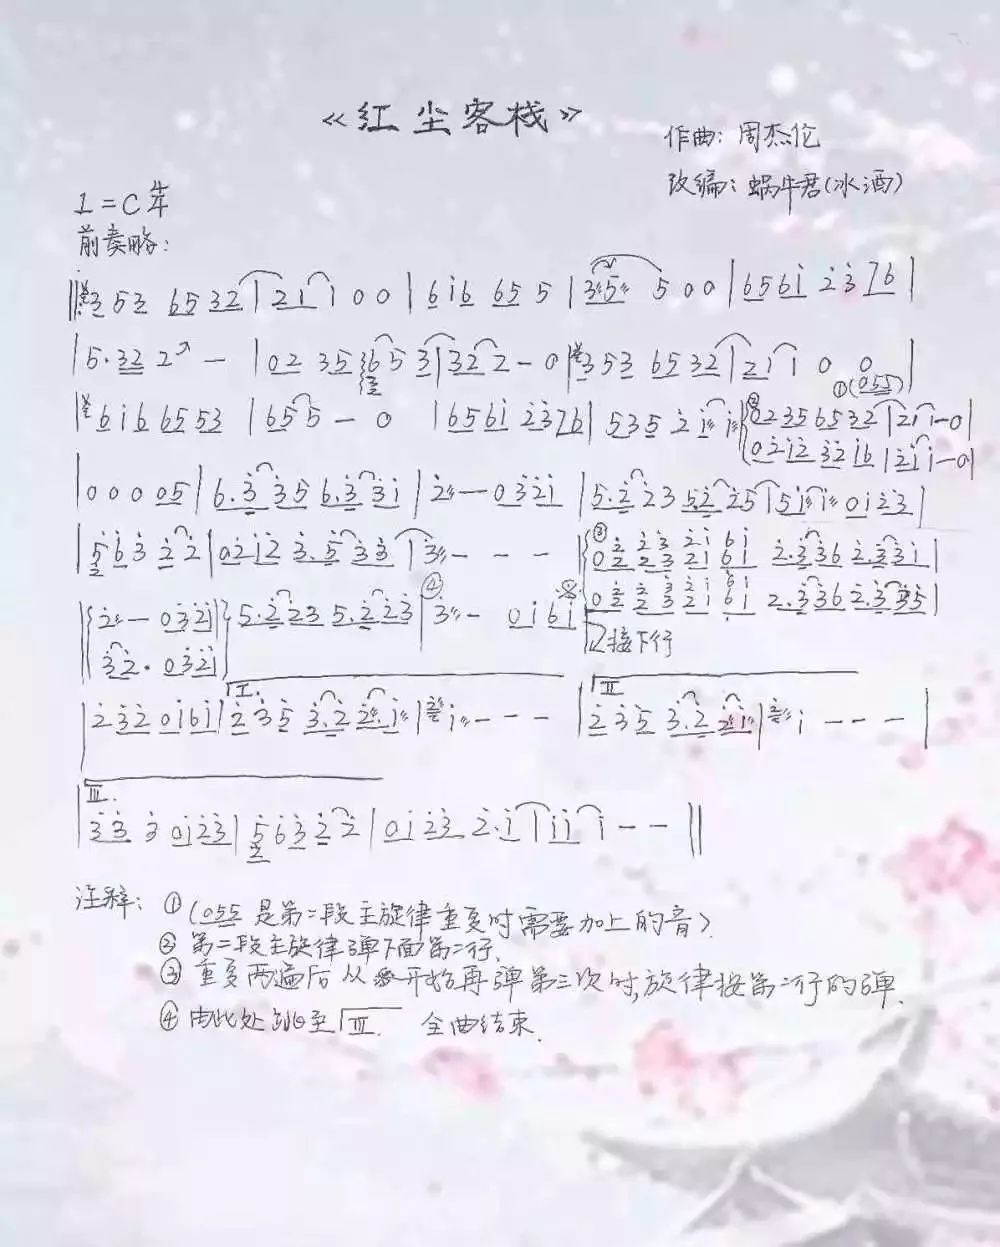 《红尘客栈》
作曲：周杰伦
改编：蜗牛君(冰酒)
1=C
前奏略：
3 5 3 6 5 3 2 | 2 1 1 0 0 | 6 i 6 6 5 5 | 3 5 5 0 0 | 6 5 6 i 2 3 7 6 |
| 5·3 2 2 — | 0 2 3 5 6 5 3 | 3 2 2 — 0 | 3 5 3 6 5 3 2 | 2 1 1 0 0 |
①(055)
| 6 i 6 6 5 5 3 | 6 5 5 — 0 | 6 5 6 i 2 3 7 6 | 5 3 5 2 i i | ② 0 2 3 5 6 5 3 2 | 2 1 1 — 0 |
0 2 i 2 3 2 i 6 | 2 i i — 0 |
| 0 0 0 0 5 | 6.3 3 5 6.3 3 i | 2 — 0 3 2 i | 5.2 2 3 5.2 2 5 | 5 i i 0 i 2 3 |
| 5 6 3 2 2 | 0 2 i 2 3.5 3 3 | 3 — — — | ③ 0 2 2 3 2 i 6 i 2.3 3 6 2.3 3 i |
0 2 2 3 2 i 6 i 2.3 3 6 2.3 3 5 |
| 2 — 0 3 2 i | 5.2 2 3 5.2 2 3 | ④ 3 — 0 i 6 i |
3 2 · 0 3 2 i
接下行
| 2 3 2 0 i 6 i | I. 2 3 5 3.2 2.i | i — — — | II 2 3 5 3.2 2 i | i — — — |
III.
| 3 3 3 0 i 2 3 | 5 6 3 2 2 | 0 i 2 3 2.i | i i i — — ||
注释：①(055 是第二段主旋律重复时需要加上的音)
② 第二段主旋律弹下面第二行.
③ 重复两遍后从𝄋开始再弹第三次时,旋律按第二行的弹.
④ 由此处跳至 III. 全曲结束.